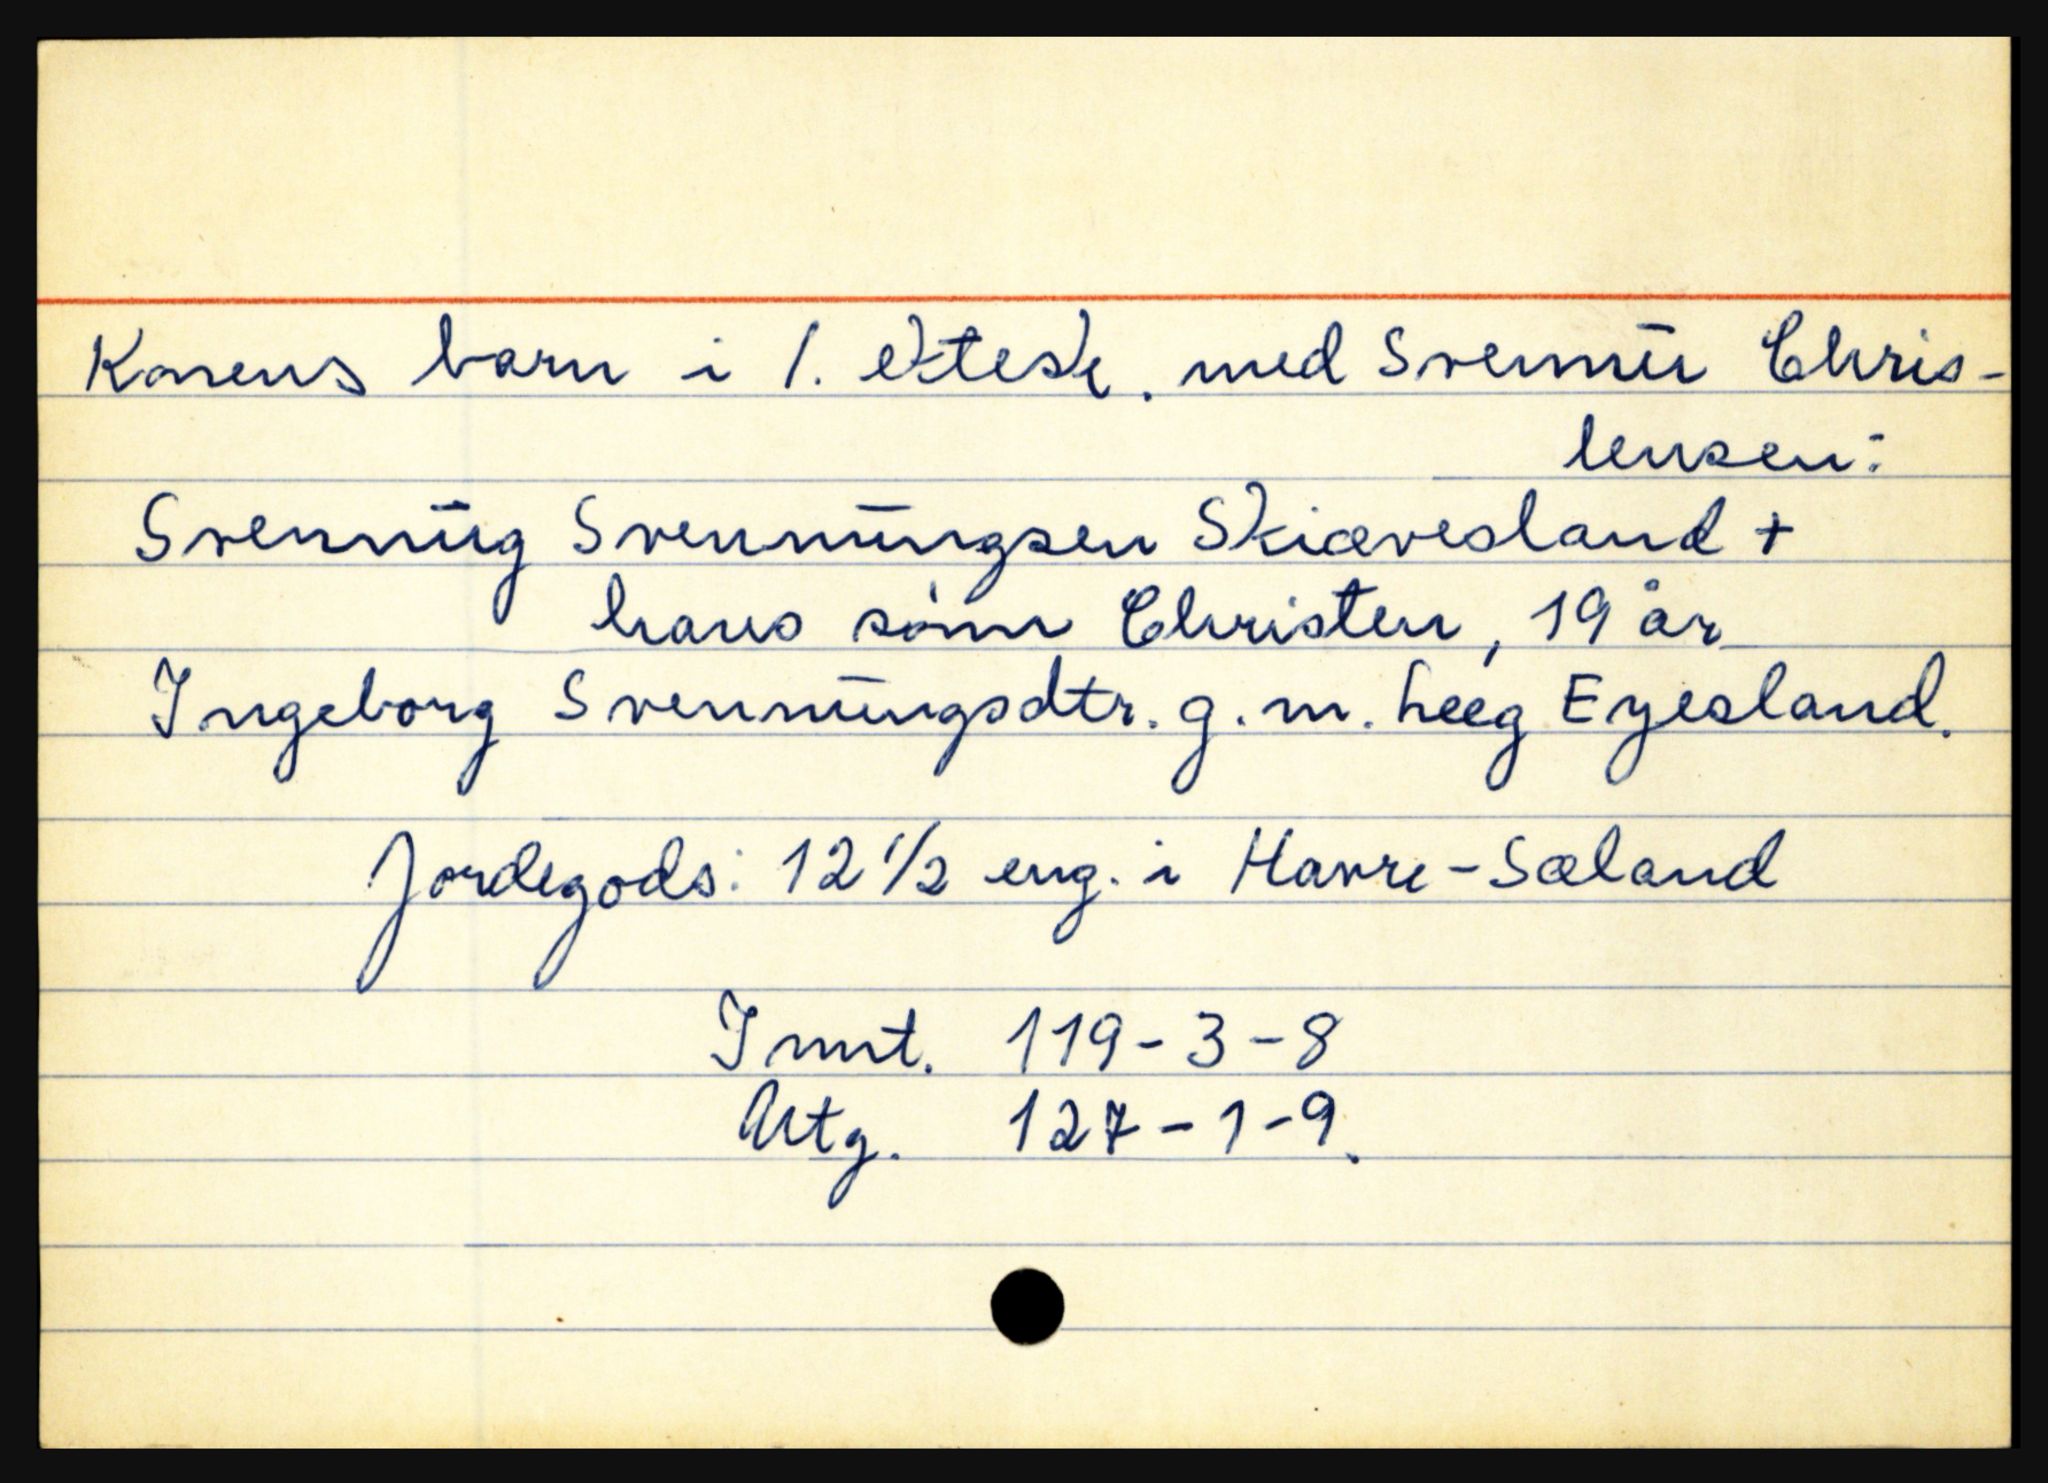 Konens barn i 1. ektesk. med Svennu Chris-
tensen:
Svennŭg Svennŭngsen Skiævesland +
hans sønn Christen, 19 år
Ingeborg Svennŭngsdtr. g. m. heeg Eyesland.
Jordegods: 12 1/2 eng. i Havre-Sæland
Innt. 119-3-8
Utg. 127-1-9.